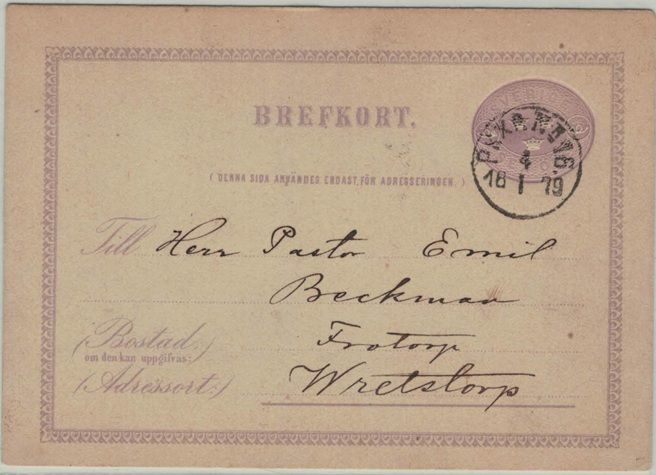 BREFKORT.
SVERIGE
PKXP. N:o 76.
4
18 1 79
( DENNA SIDA ANVÄNDES ENDAST FÖR ADRESSERINGEN. )
Till Herr Pastor Emil
Beckman
(Bostad,)
om den kan uppgifvas:
Frotorp
(Adressort:)
Wretstorp